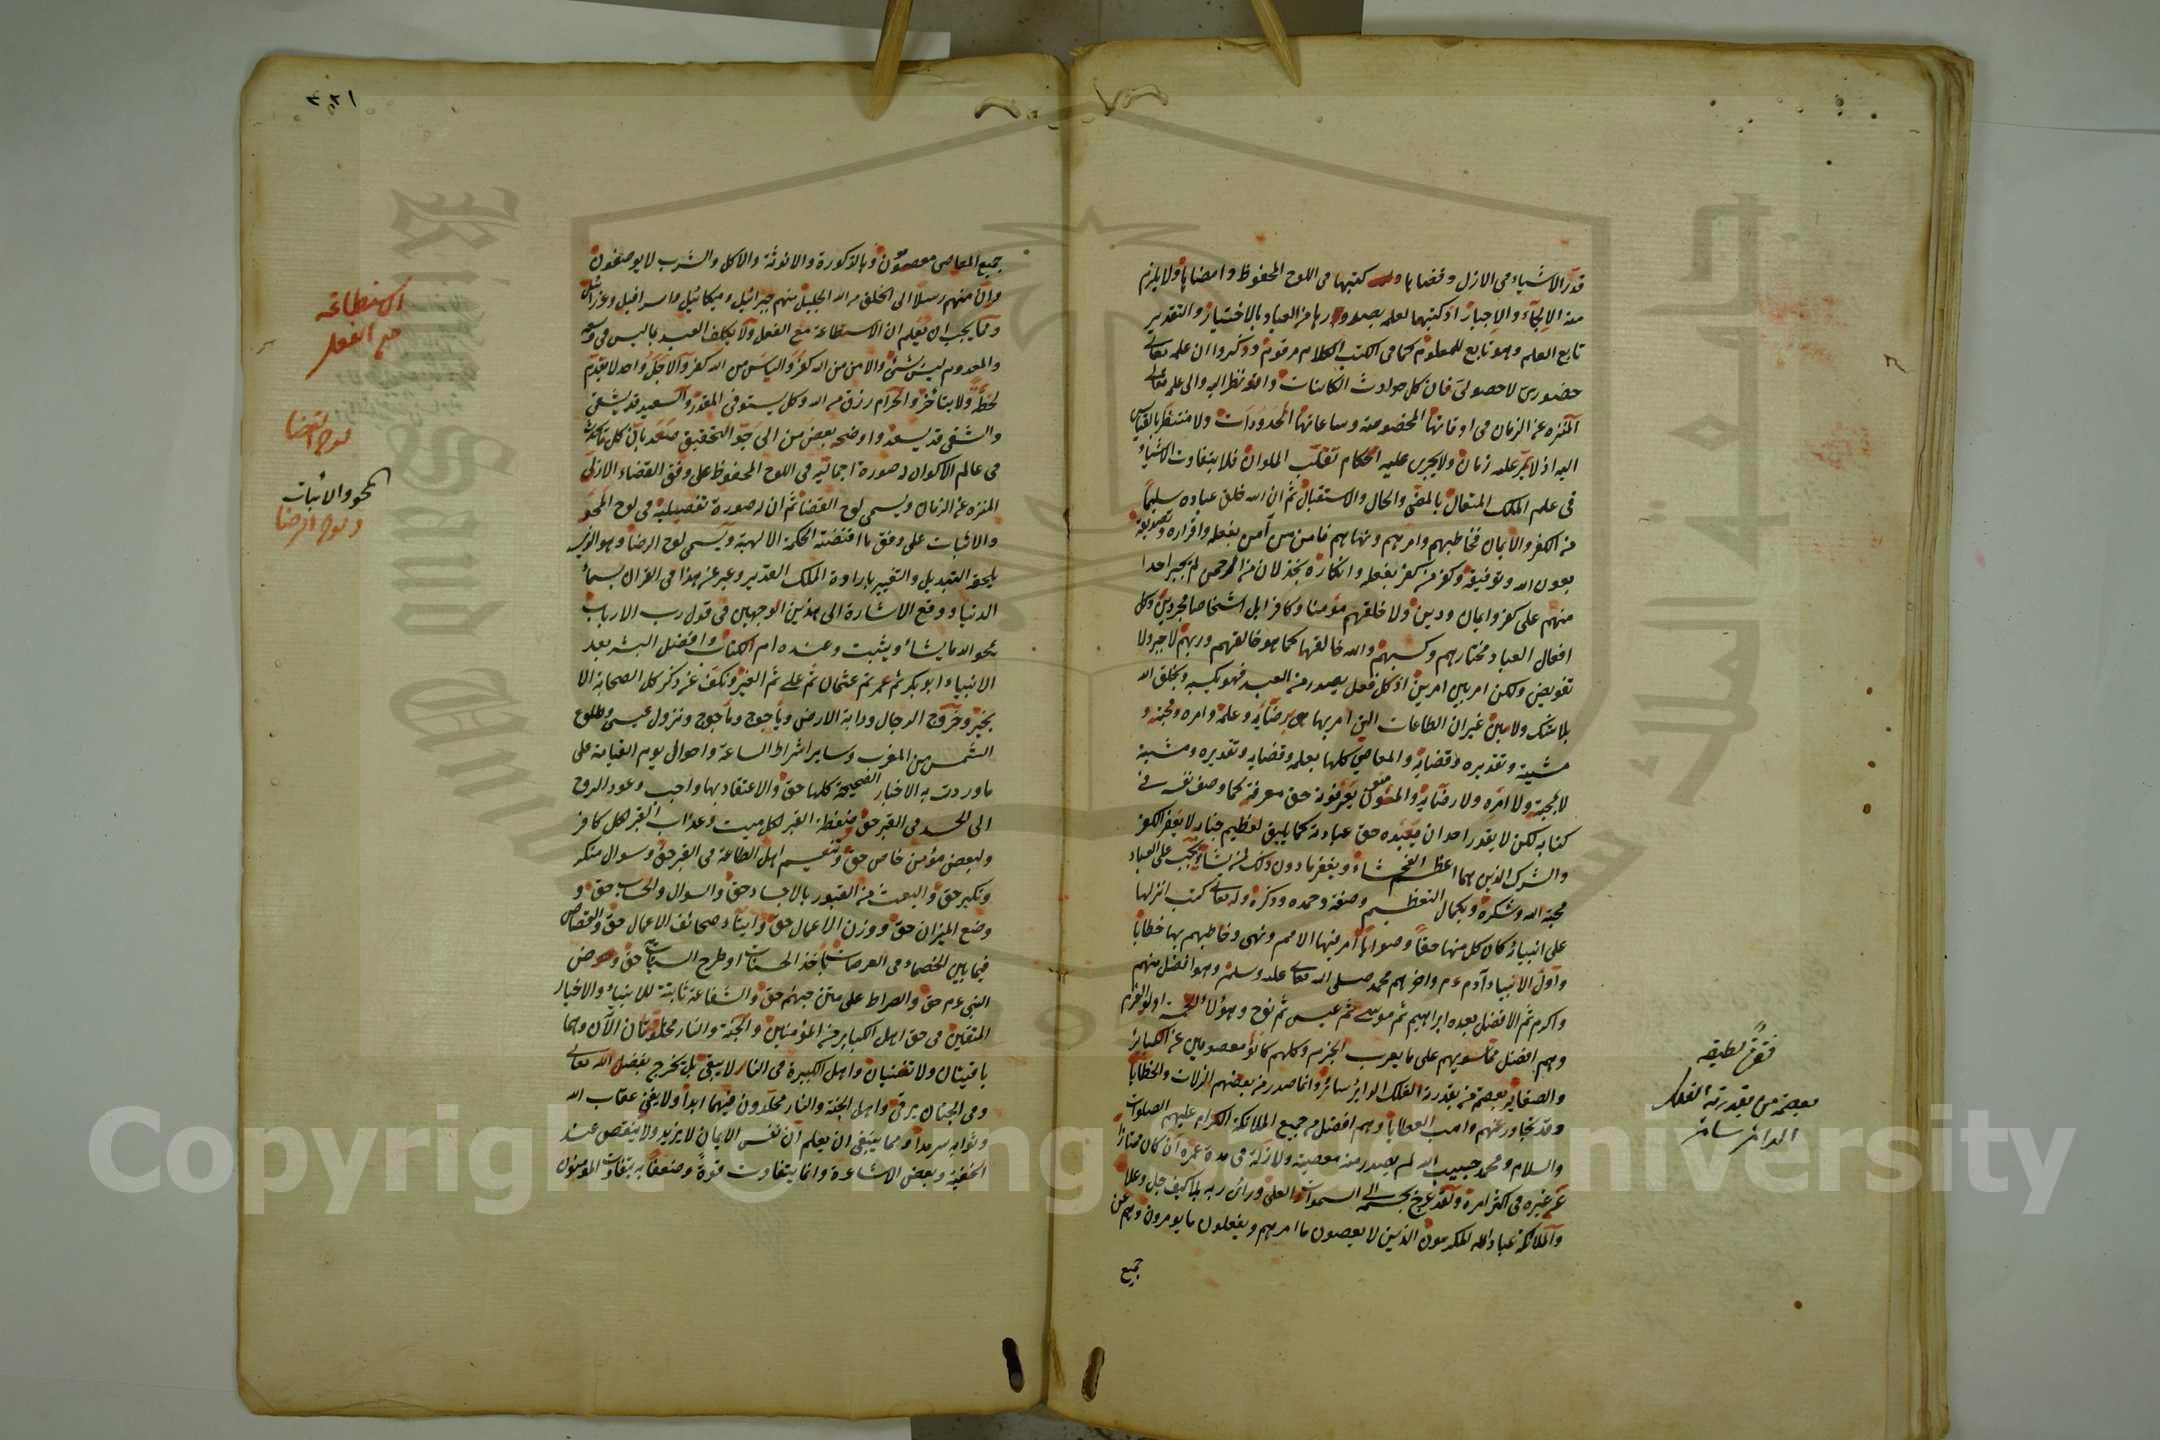 قدر الاشياء فى الازل وقضاها وله كتبها فى اللوح المحفوظ وامضاها ولا يلزم
منه الالجاء والاجبار اذ كتبها لعلمه بصدورها من العباد بالاختيار والتقدير
تابع العلم وهو تابع للمعلوم كما فى الكتب الكلام مرقوم وذكروا ان علمه تعالى
حضورى لا حصولى فان كل حوادث الكائنات والى علمه تعالى
المنزه عن الزمان فى اوقاتها المخصوصة وساعاتها المحدودات ولا منتظر بالقياس
اليه اذ لا يمر علمه زمان ولا يجرى عليه احكام تقلب الملوان فلا يتفاوت الاشياء
فى علم الملك المتعال بالمضى والحال والاستقبال ثم ان الله خلق عباده سليما
من الكفر والايمان فخاطبهم وامرهم ونهاهم فامن من آمن بفعله واقراره وتصديقه
بعون الله وتوفيقه وكفر من كفر بفعله وانكاره بخذلان من الرحمن لم يجبر احدا
منهم على كفر وايمان ودين ولا خلقهم مؤمنا وكافرا بل اشخاصا مجردين وكل
افعال العباد مختارهم وكسبهم والله خالقها كما هو خالقهم وربهم لا جبر ولا
تفويض ولكن امر بين امرين اذ كل فعل يصدر من العبد فهو بكسبه وبخلق الله
بلا شك ولا مين غير ان الطاعات التى امر بها برضائه وعلمه وامره ومحبته و
مشيته وتقديره وقضايه والمعاصى كلها بعلمه وقضايه وتقديره ومشيته
لا بمحبته ولا امره ولا رضايه والمؤمنون يعرفونه حق معرفته كما وصف نفسه فى
كتابه لكن لا يقدر احد ان يعبده حق عبادته كما يليق لعظيم جنابه لا يغفر الكفر
والشرك الذين هما اعظم الفحشاء ويغفر ما دون ذلك لمن يشاء ويجب على العباد
محبة الله وشكره وبكمال التعظيم وصفه وحمده وذكره وله تعالى كتب انزلها
على انبيائه كان كل منها حقا وصوابا امر بها الامم ونهى وخاطبهم بها خطابا
واول الانبياء آدم ءم واخرهم محمد صلى الله تعالى عليه وسلم وهو افضل منهم
واكرم ثم الافضل بعده ابراهيم ثم موسى ثم عيسى ثم نوح وهؤلاء الخمسة اولو العزم
وهم افضل مما سويهم على ما يعرب الجزم وكلهم كانوا معصومين عن الكبائر
والصغائر بعصمة من بقدرته الفلك الدائر سائر وانما صدر من بعضهم الزلات والخطايا
وقد تجاوز عنهم واهب العطايا وهم افضل من جميع الملائكة الكرام عليهم الصلوات
والسلام ومحمد حبيب الله لم يصدر منه معصية ولا زلة فى مدة عمره ان كان ممتازا
عن غيره فى اكثر امره ولقد عرج بجسمه الى السموات العلى وراى ربه بلا كيف جل وعلا
والملائكة عباد الله المكرمون الذين لا يعصون ما امرهم ويفعلون ما يومرون وهم عن
جميع
بعصمة من بقدرته الفلك
الدائر سائر
٣٨١
جميع المعاصى معصومون وبالذكورة والانوثة والاكل والشرب لا يوصفون
وان منهم رسلا الى الخلق من الله الجليل منهم جبرائيل وميكائيل واسرافيل وعزرائيل
ومما يجب ان يعلم ان الاستطاعة مع الفعل ولا يكلف العبد بما ليس فى وسعه
والمعدوم ليس بشئ والامن من الله كفر والياس من الله كفر والاجل واحد لا يتقدم
لحظة ولا يتأخر والحرام رزق من الله وكل يستوفى المقدر والسعيد قد يشقى
والشقى قد يسعد واوضحه بعض من الى جو التحقيق صعد بان كل ما يحدث
فى عالم الاكوان له صورة اجمالية فى اللوح المحفوظ على وفق القضاء الازلى
المنزه عن الزمان ويسمى لوح القضا ثم ان له صورة تفصيلية فى لوح المحو
والاثبات على وفق ما اقتضته الحكمة الالهية ويسمى لوح الرضا وهو الذى
يلحقه التبديل والتغيير بارادة الملك القدير وعبر عن هذا فى القران بسماء
الدنيا ووقع الاشارة الى هذين الوجهين فى قول رب الارباب
يمحو الله ما يشاء ويثبت وعنده ام الكتاب وافضل البشر بعد
الانبياء ابو بكر ثم عمر ثم عثمان ثم على ثم الغير ونكف عن ذكر كل الصحابة الا
بخير وخروج الدجال ودابة الارض وياجوج وماجوج ونزول عيسى وطلوع
الشمس من المغرب وساير اشراط الساعة واحوال يوم القيامة على
ما وردت به الاخبار الصحيحة كلها حق والاعتقاد بها واجب وعود الروح
الى الجسد فى القبر حق وضغطة القبر لكل ميت وعذاب القبر لكل كافر
ولبعض مؤمن خاص حق وتنعيم اهل الطاعة فى القبر حق وسوال منكر
ونكير حق والبعث من القبور بالاجساد حق والسوال والحساب حق و
وضع الميزان حق ووزن الاعمال حق وايتاء صحائف الاعمال حق والقصاص
فيما بين الخصماء فى العرصات باخذ الحسنات او طرح السيئات حق وحوض
النبى ءم حق والصراط على متن جهنم حق والشفاعة ثابتة للانبياء والاخيار
المتقين فى حق اهل الكباير من المؤمنين والجنة والنار مخلوقتان الان وهما
باقيتان ولا تفنيان واهل الكبيرة فى النار لا يبقى بل يخرج بفضل الله تعالى
وفى الجنان يرقى واهل الجنة والنار مخلدون فيهما ابدا ولا يفنى عقاب الله
وثوابه سرمدا ومما ينبغى ان يعلم ان نفس الايمان لا يزيد ولا ينقص عند
الحنفية وبعض الاشاعرة وانما يتفاوت قوة وضعفا به يتفاوت المؤمنون
الاستطاعة
مع الفعل
لوح القضا
المحو والاثبات
ولوح الرضا
Copyright © King Saud University